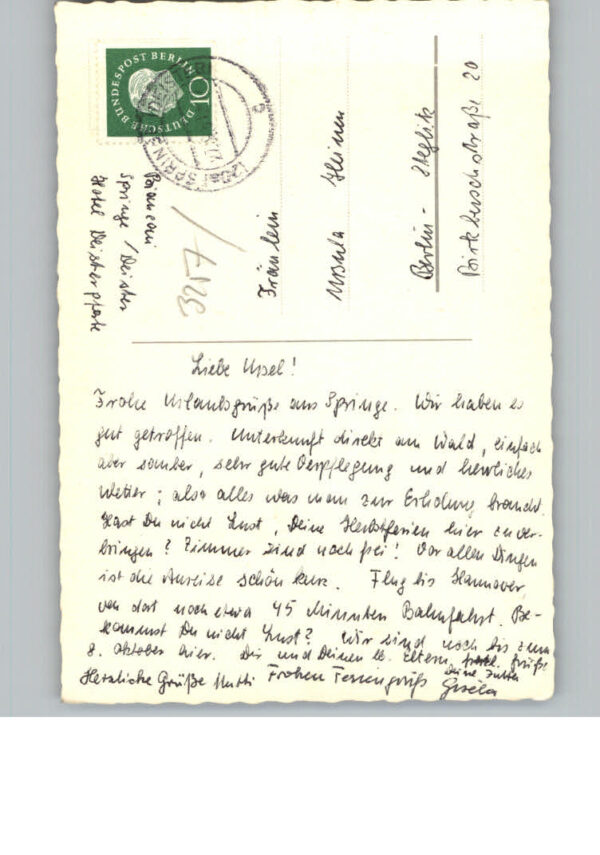 DEUTSCHE BUNDESPOST BERLIN
10
(20a) SPRINGE
a
Springe / Deister
Hotel Deisterpforte
Fräulein
Ursula Heinen
Berlin - Steglitz
Birkbuschstraße 20
Liebe Ursel!
Frohe Urlaubsgrüße aus Springe. Wir haben es
gut getroffen. Unterkunft direkt am Wald, einfach
aber sauber, sehr gute Verpflegung und herrliches
Wetter; also alles was man zur Erholung braucht.
Hast Du nicht Lust, Deine Herbstferien hier zu ver-
bringen? Zimmer sind noch frei! Vor allen Dingen
ist die Anreise schön kurz. Flug bis Hannover,
von dort noch etwa 45 Minuten Bahnfahrt. Be-
kommst Du nicht Lust? Wir sind noch bis zum
8. Oktober hier. Dir und Deinen lb. Eltern herzl. Grüße
Deine Jutta
Herzliche Grüße Mutti Frohen Feriengruß Gisela